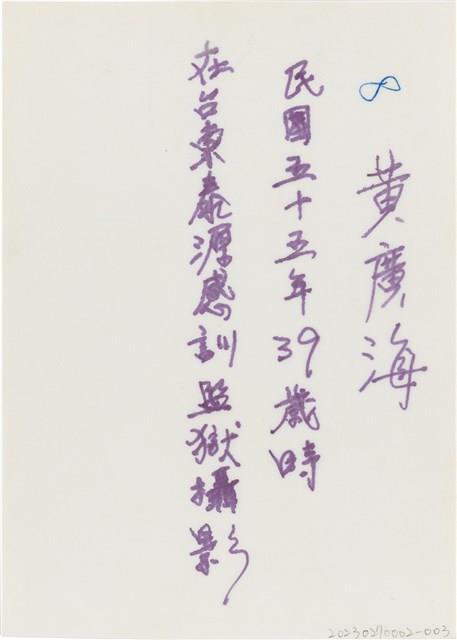 8
黃廣海
民國五十五年39歲時
在台東泰源感訓監獄攝影
2023020002-003